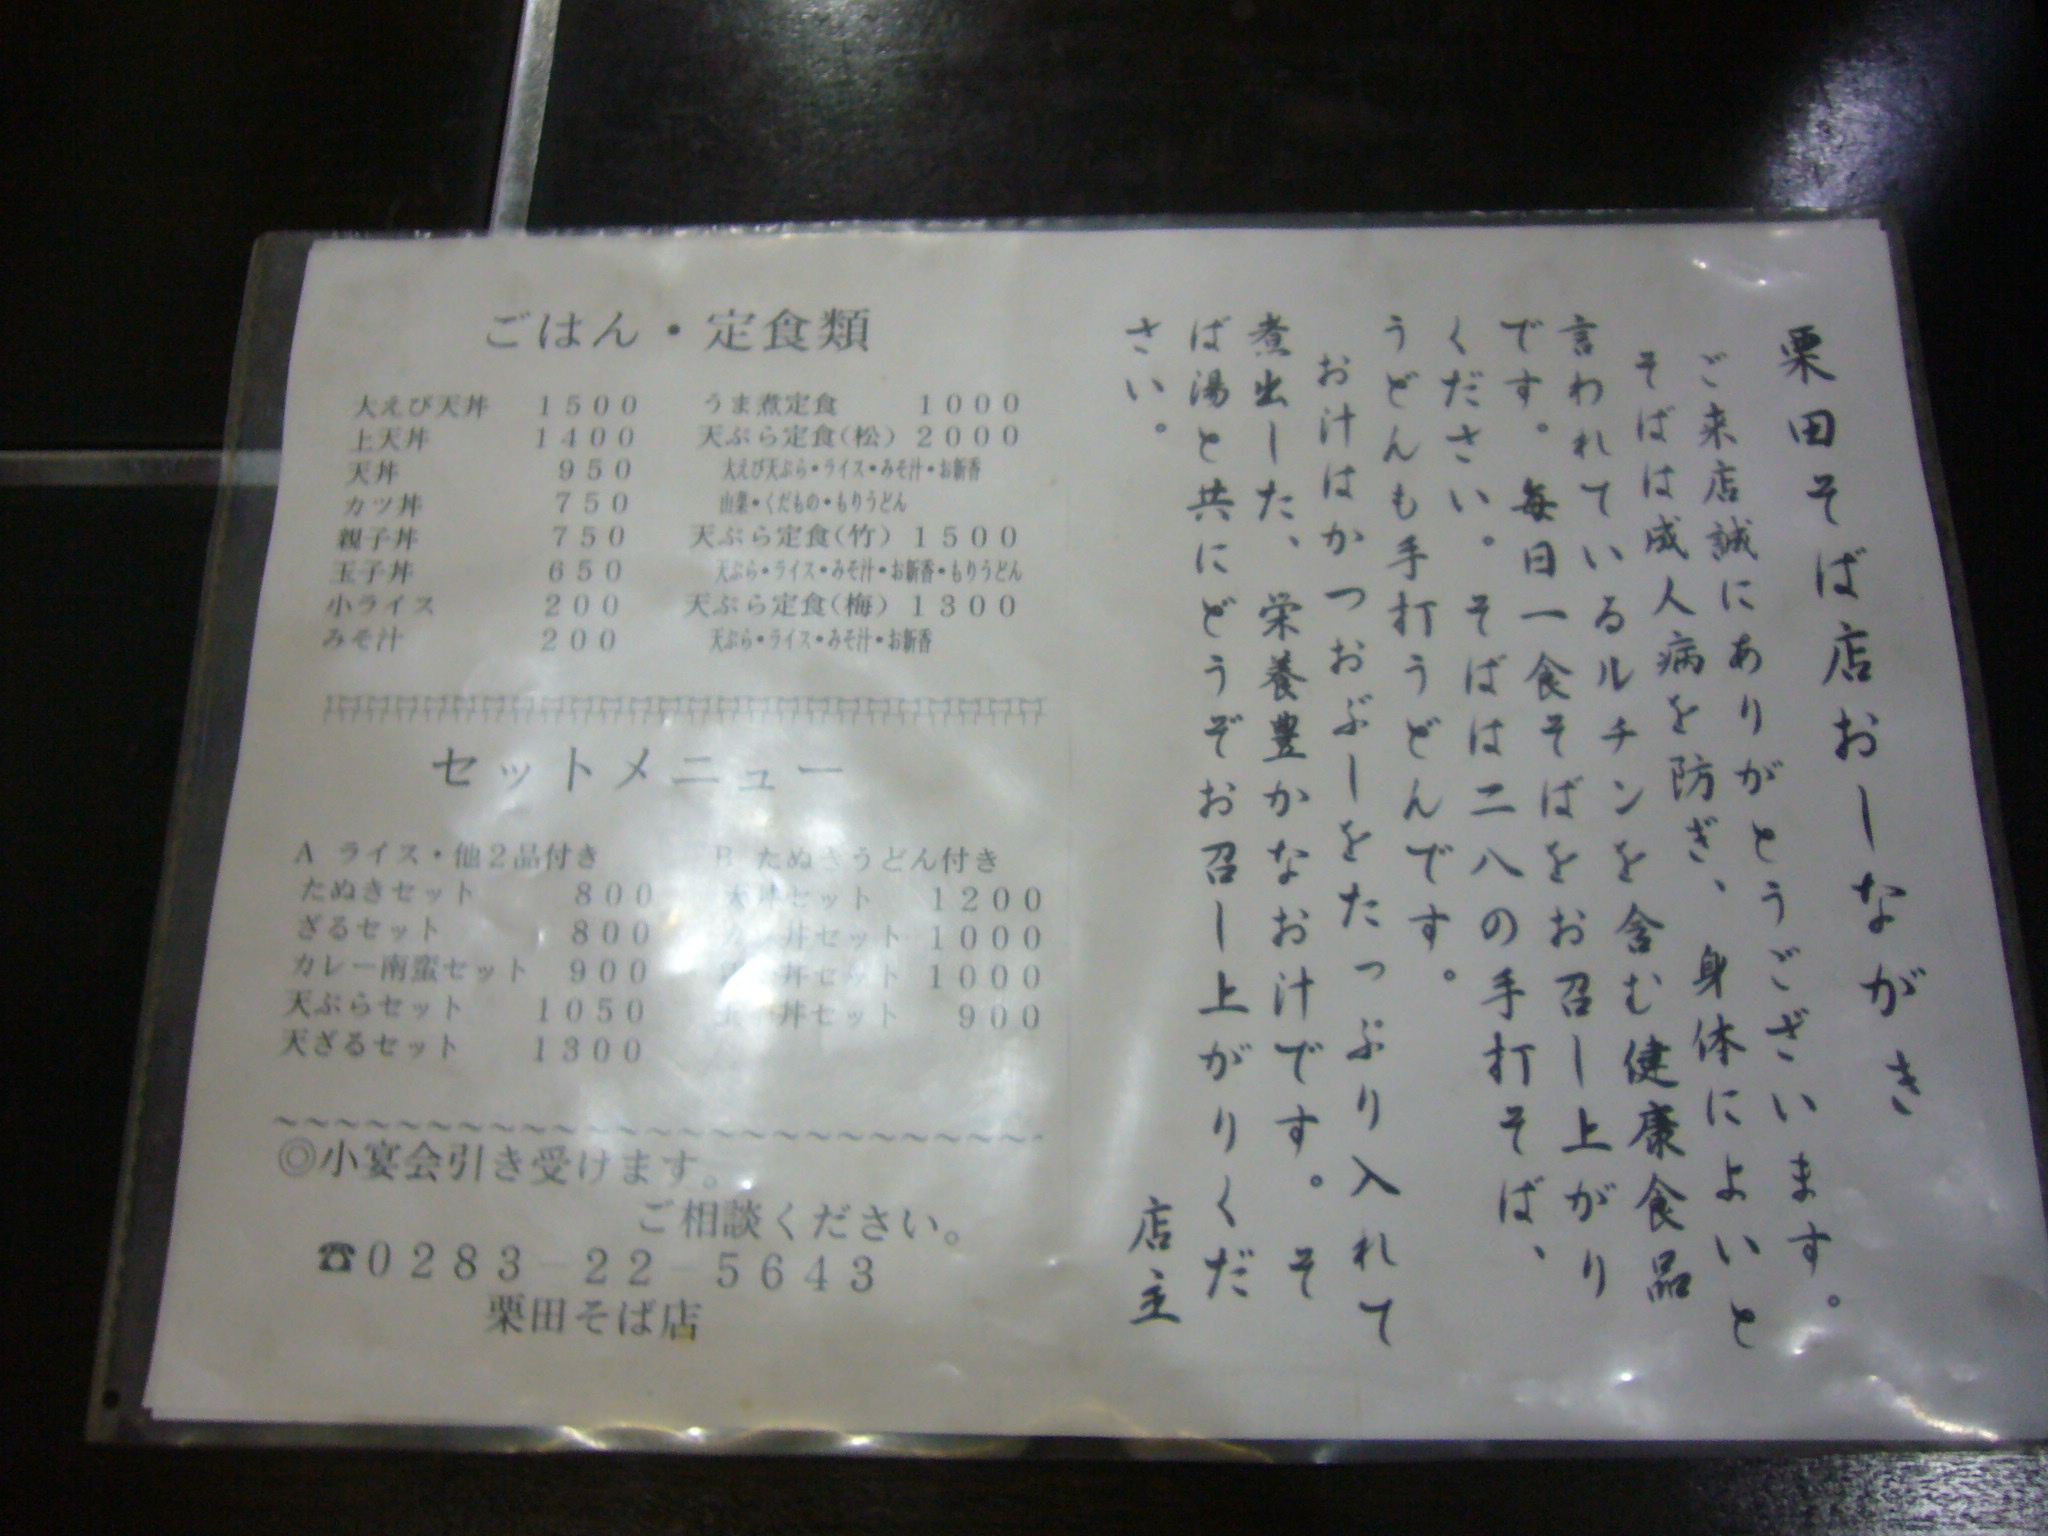 栗田そば店おしながき
ご来店誠にありがとうございます。
そばは成人病を防ぎ、身体によいと
言われているルチンを含む健康食品
です。毎日一食そばをお召し上がり
ください。そばは二八の手打そば、
うどんも手打うどんです。
お汁はかつおぶしをたっぷり入れて
煮出した、栄養豊かなお汁です。そ
ば湯と共にどうぞお召し上がりくだ
さい。
店主
ごはん・定食類
大えび天丼 1500
上天丼 1400
天丼 950
カツ丼 750
親子丼 750
玉子丼 650
小ライス 200
みそ汁 200
うま煮定食 1000
天ぷら定食(松) 2000
大えび天ぷら・ライス・みそ汁・お新香
山菜・くだもの・もりうどん
天ぷら定食(竹) 1500
天ぷら・ライス・みそ汁・お新香・もりうどん
天ぷら定食(梅) 1300
天ぷら・ライス・みそ汁・お新香
セットメニュー
A ライス・他2品付き
たぬきセット 800
ざるセット 800
カレー南蛮セット 900
天ぷらセット 1050
天ざるセット 1300
B たぬきうどん付き
天丼セット 1200
カツ丼セット 1000
丼セット 1000
丼セット 900
~~~~~~~~~~~~~~~~~~~~~~~~~~
◎小宴会引き受けます。
ご相談ください。
☎0283-22-5643
栗田そば店